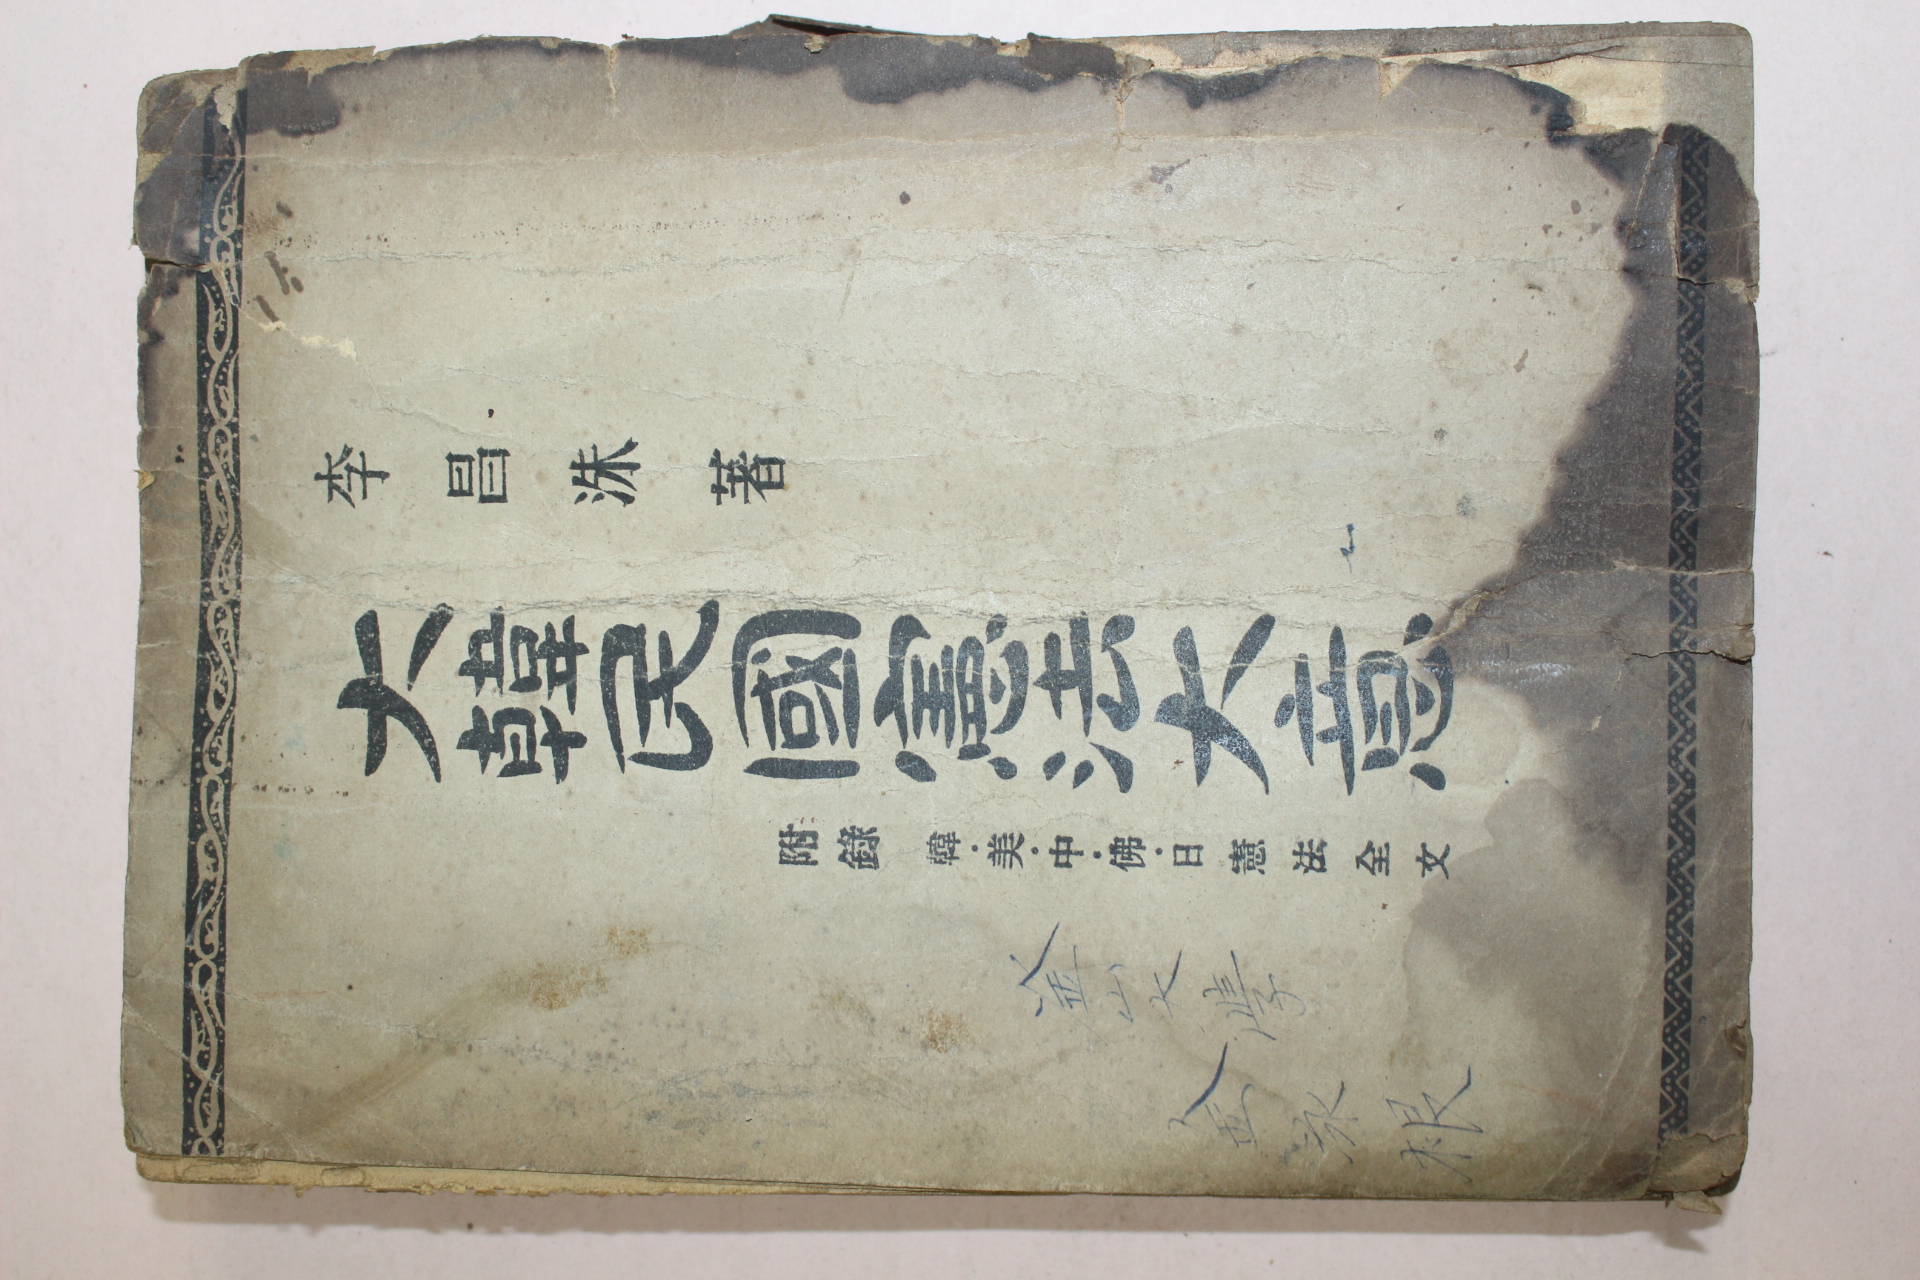 李昌洙著
大韓民國憲法大意
附錄 韓·美·中·佛·日憲法全文
釜山大學
金 根